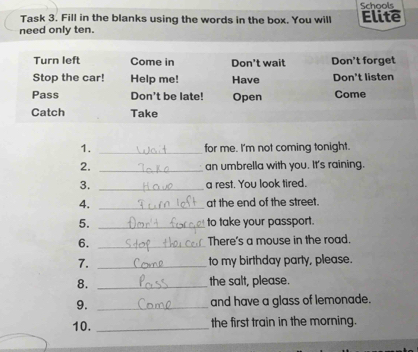 Schools
Elite
Task 3. Fill in the blanks using the words in the box. You will
need only ten.
Turn left Come in Don't wait Don't forget
Stop the car! Help me! Have Don't listen
Pass Don't be late! Open Come
Catch Take
1. Wait for me. I'm not coming tonight.
2. Take an umbrella with you. It's raining.
3. Have a rest. You look tired.
4. Turn left at the end of the street.
5. Don't forget to take your passport.
6. Stop the car There's a mouse in the road.
7. Come to my birthday party, please.
8. Pass the salt, please.
9. Come and have a glass of lemonade.
10. the first train in the morning.